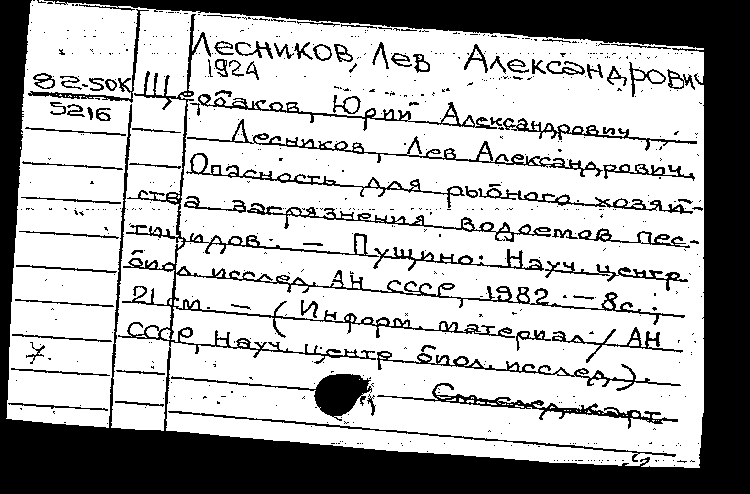 Лесников, Лев Александрович
1924
82-50К
5216
Щербаков, Юрий Александрович,
Лесников, Лев Александрович.
Опасность для рыбного хозяй-
ства загрязнения водоемов пес-
тицидов. — Пущино: Науч. центр
биол. исслед. АН СССР, 1982. — 8с.;
21 см. — (Информ. материал / АН
СССР, Науч. центр биол. исслед.).
См. след. карт.